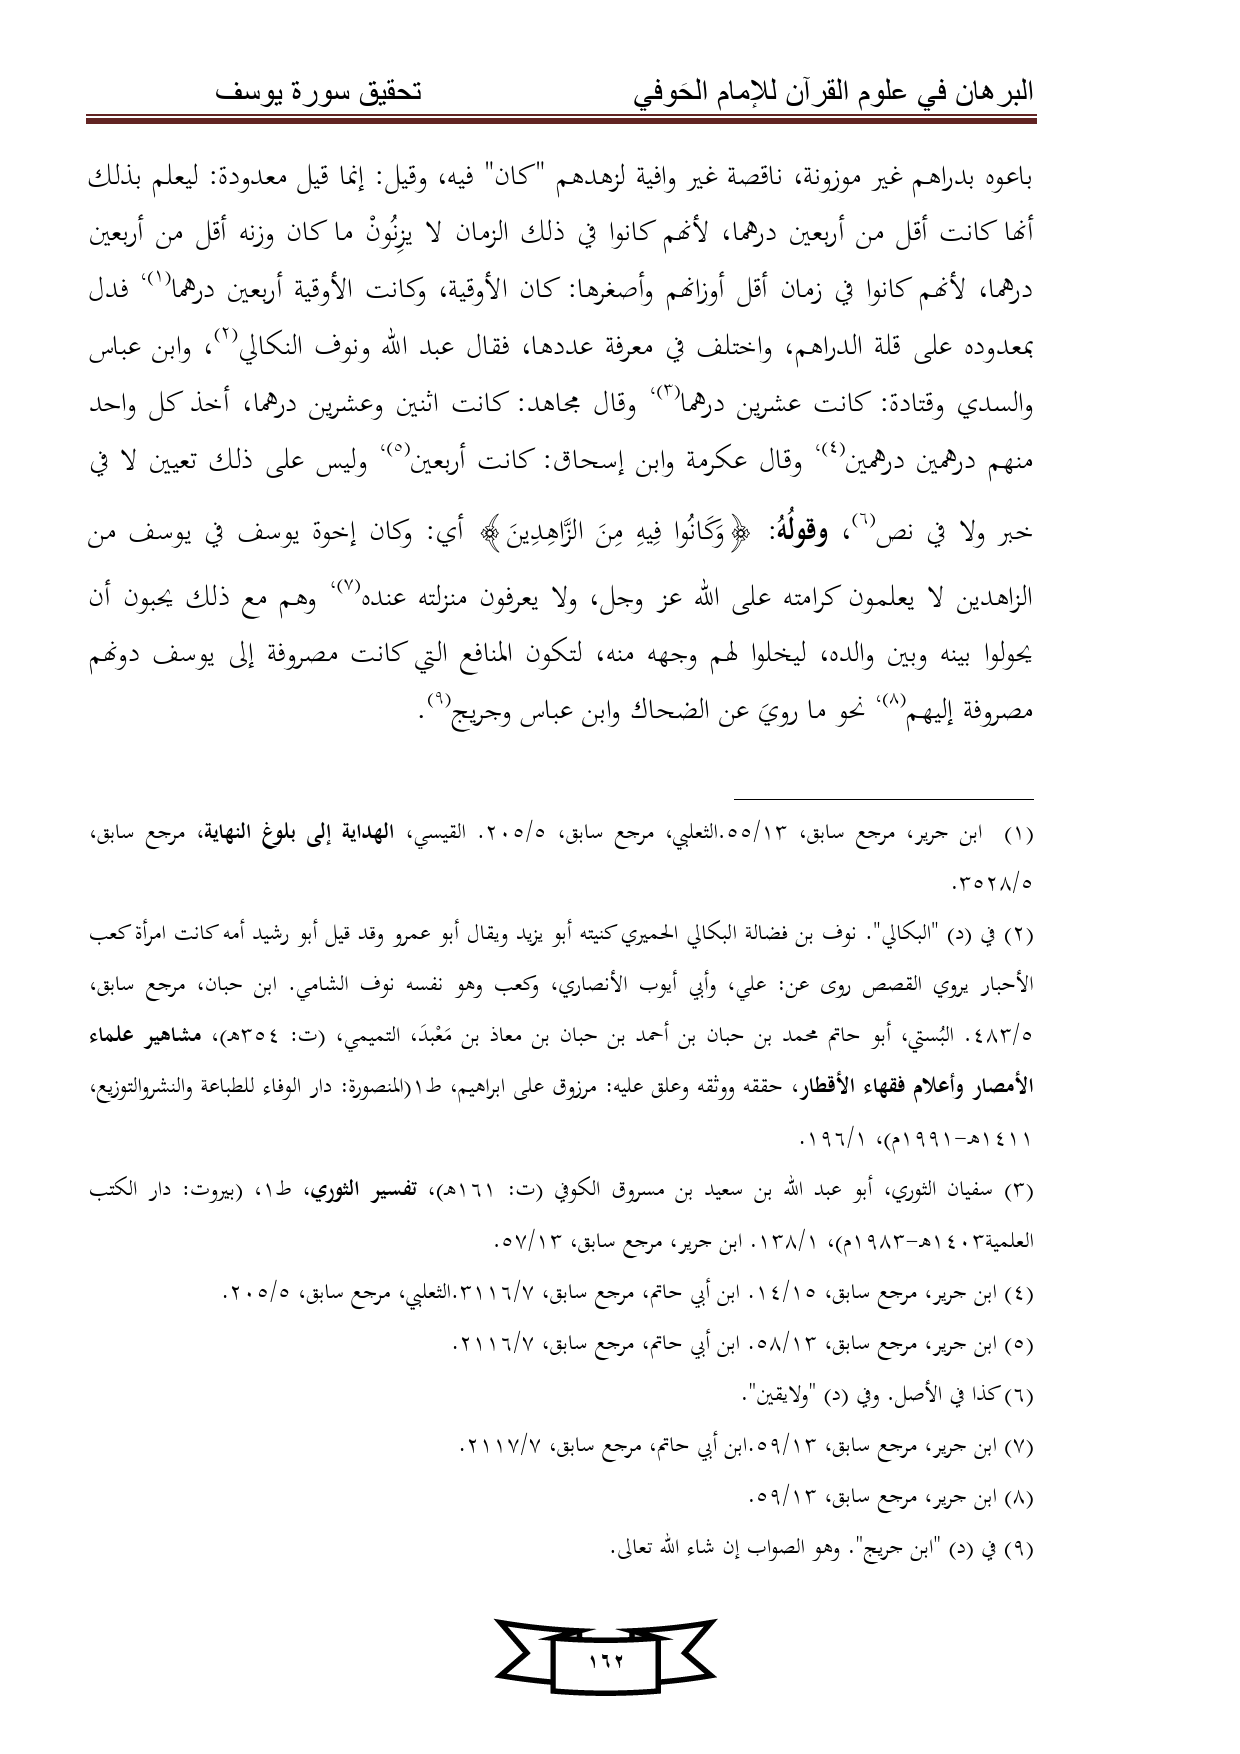 البرهان في علوم القرآن للإمام الحَوفي تحقيق سورة يوسف
باعوه بدراهم غير موزونة، ناقصة غير وافية لزهدهم "كان" فيه، وقيل: إنما قيل معدودة: ليعلم بذلك
أنها كانت أقل من أربعين درهما، لأنهم كانوا في ذلك الزمان لا يزِنُونْ ما كان وزنه أقل من أربعين
درهما، لأنهم كانوا في زمان أقل أوزانهم وأصغرها: كان الأوقية، وكانت الأوقية أربعين درهما(١)، فدل
بمعدوده على قلة الدراهم، واختلف في معرفة عددها، فقال عبد الله ونوف النكالي(٢)، وابن عباس
والسدي وقتادة: كانت عشرين درهما(٣)، وقال مجاهد: كانت اثنين وعشرين درهما، أخذ كل واحد
منهم درهمين درهمين(٤)، وقال عكرمة وابن إسحاق: كانت أربعين(٥)، وليس على ذلك تعيين لا في
خبر ولا في نص(٦)، وقولُهُ: ﴿وَكَانُوا فِيهِ مِنَ الزَّاهِدِينَ﴾ أي: وكان إخوة يوسف في يوسف من
الزاهدين لا يعلمون كرامته على الله عز وجل، ولا يعرفون منزلته عنده(٧)، وهم مع ذلك يحبون أن
يحولوا بينه وبين والده، ليخلوا لهم وجهه منه، لتكون المنافع التي كانت مصروفة إلى يوسف دونهم
مصروفة إليهم(٨)، نحو ما رويَ عن الضحاك وابن عباس وجريج(٩).
(١) ابن جرير، مرجع سابق، ٥٥/١٣.الثعلبي، مرجع سابق، ٢٠٥/٥. القيسي، الهداية إلى بلوغ النهاية، مرجع سابق،
٣٥٢٨/٥.
(٢) في (د) "البكالي". نوف بن فضالة البكالي الحميري كنيته أبو يزيد ويقال أبو عمرو وقد قيل أبو رشيد أمه كانت امرأة كعب
الأحبار يروي القصص روى عن: علي، وأبي أيوب الأنصاري، وكعب وهو نفسه نوف الشامي. ابن حبان، مرجع سابق،
٤٨٣/٥. البُستي، أبو حاتم محمد بن حبان بن أحمد بن حبان بن معاذ بن مَعْبدَ، التميمي، (ت: ٣٥٤هـ)، مشاهير علماء
الأمصار وأعلام فقهاء الأقطار، حققه ووثقه وعلق عليه: مرزوق على ابراهيم، ط١(المنصورة: دار الوفاء للطباعة والنشروالتوزيع،
١٤١١هـ-١٩٩١م)، ١٩٦/١.
(٣) سفيان الثوري، أبو عبد الله بن سعيد بن مسروق الكوفي (ت: ١٦١هـ)، تفسير الثوري، ط١، (بيروت: دار الكتب
العلمية١٤٠٣هـ-١٩٨٣م)، ١٣٨/١. ابن جرير، مرجع سابق، ٥٧/١٣.
(٤) ابن جرير، مرجع سابق، ١٤/١٥. ابن أبي حاتم، مرجع سابق، ٣١١٦/٧.الثعلبي، مرجع سابق، ٢٠٥/٥.
(٥) ابن جرير، مرجع سابق، ٥٨/١٣. ابن أبي حاتم، مرجع سابق، ٢١١٦/٧.
(٦) كذا في الأصل. وفي (د) "ولايقين".
(٧) ابن جرير، مرجع سابق، ٥٩/١٣.ابن أبي حاتم، مرجع سابق، ٢١١٧/٧.
(٨) ابن جرير، مرجع سابق، ٥٩/١٣.
(٩) في (د) "ابن جريج". وهو الصواب إن شاء الله تعالى.
١٦٢